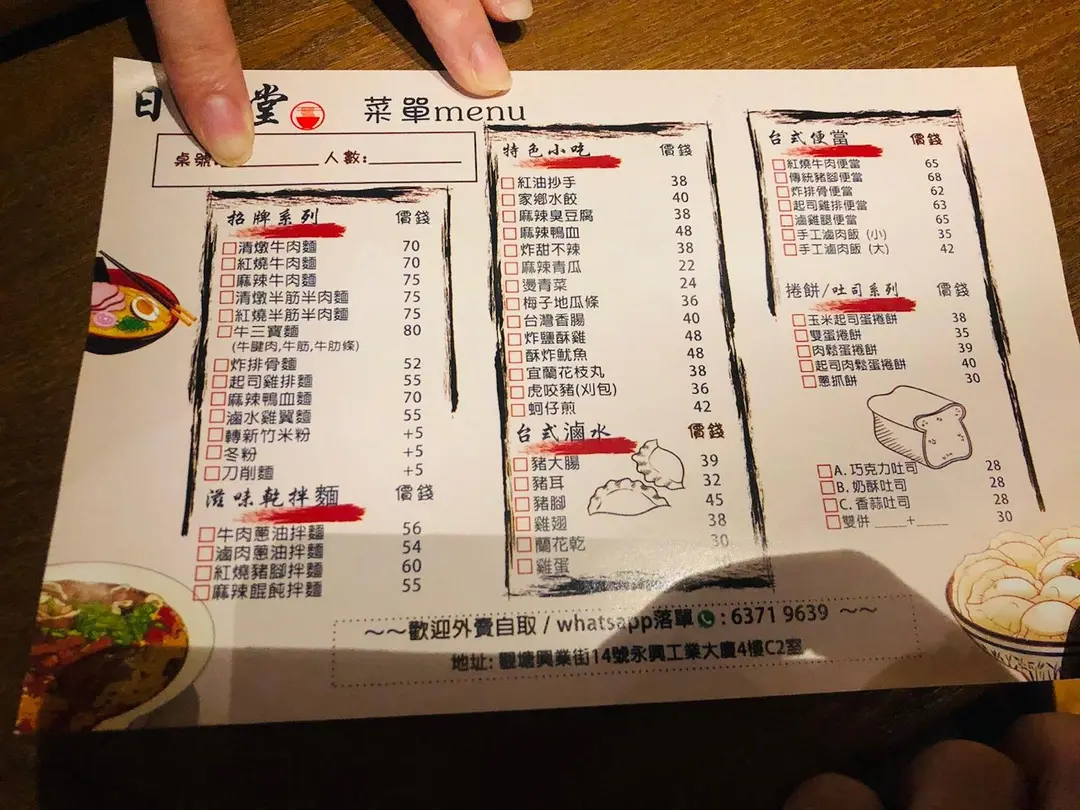 日 堂 菜單menu
桌號: 人數:
招牌系列 價錢
清燉牛肉麵 70
紅燒牛肉麵 70
麻辣牛肉麵 75
清燉半筋半肉麵 75
紅燒半筋半肉麵 75
牛三寶麵 80
(牛腱肉,牛筋,牛肋條)
炸排骨麵 52
起司雞排麵 55
麻辣鴨血麵 70
滷水雞翼麵 55
轉新竹米粉 +5
冬粉 +5
刀削麵 +5
滋味乾拌麵 價錢
牛肉蔥油拌麵 56
滷肉蔥油拌麵 54
紅燒豬腳拌麵 60
麻辣餛飩拌麵 55
特色小吃 價錢
紅油抄手 38
家鄉水餃 40
麻辣臭豆腐 38
麻辣鴨血 48
炸甜不辣 38
麻辣青瓜 22
燙青菜 24
梅子地瓜條 36
台灣香腸 40
炸鹽酥雞 48
酥炸魷魚 48
宜蘭花枝丸 38
虎咬豬(刈包) 36
蚵仔煎 42
台式滷水 價錢
豬大腸 39
豬耳 32
豬腳 45
雞翅 38
蘭花乾 30
雞蛋
台式便當 價錢
紅燒牛肉便當 65
傳統豬腳便當 68
炸排骨便當 62
起司雞排便當 63
滷雞腿便當 65
手工滷肉飯 (小) 35
手工滷肉飯 (大) 42
捲餅/吐司系列 價錢
玉米起司蛋捲餅 38
雙蛋捲餅 35
肉鬆蛋捲餅 39
起司肉鬆蛋捲餅 40
蔥抓餅 30
A. 巧克力吐司 28
B. 奶酥吐司 28
C. 香蒜吐司 28
雙併 ____+____ 30
~~歡迎外賣自取 / whatsapp落單 : 6371 9639 ~~
地址: 觀塘興業街14號永興工業大廈4樓C2室